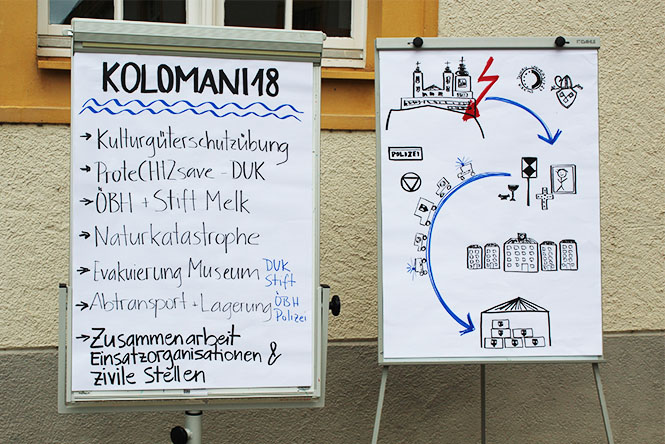 KOLOMANI18
→ Kulturgüterschutzübung
→ ProteCHT2save - DUK
→ ÖBH + Stift Melk
→ Naturkatastrophe
→ Evakuierung Museum DUK
Stift
→ Abtransport + Lagerung ÖBH
Polizei
→ Zusammenarbeit
Einsatzorganisationen &
zivile Stellen
POLIZEI